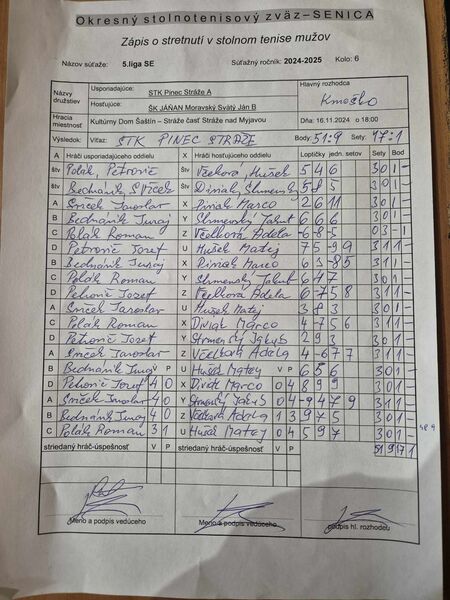 Okresný stolnotenisový zväz–SENICA
Zápis o stretnutí v stolnom tenise mužov
Názov súťaže: 5.liga SE Súťažný ročník: 2024-2025 Kolo: 6
Názvy družstiev Usporiadajúce: STK Pinec Stráže A Hlavný rozhodca
Hosťujúce: ŠK JÁŇAN Moravský Svätý Ján B Kmoško
Hracia miestnosť Kultúrny Dom Šaštín – Stráže časť Stráže nad Myjavou Dňa: 16.11.2024 o 18:00
Výsledok: Víťaz: STK PINEC STRÁŽE Body: Sety: 17:1
A Hráči usporiadajúceho oddielu X Hráči hosťujúceho oddielu Loptičky jedn. setov Sety Bod
štv Polák, Petrovič štv Včelkova, Hušek 5 4 6 3 0 1 –
štv Bednárik Srček štv 5 8 5 3 0 1 –
A Srček Jaroslav X Marco 2 6 11 3 0 1 –
B Bednárik Juraj Y 6 6 6 3 0 1 –
C Polák Roman Z Včelková Adela –6 –8 –5 0 3 – 1
D Petrovič Jozef U Hušek Matej 7 5 –9 9 3 1 1 –
B Bednárik Juraj X Marco 6 3 –8 5 3 1 1 –
C Polák Roman Y 6 4 7 3 0 1 –
D Petrovič Jozef Z Včelková Adela 6 –7 5 8 3 1 1 –
A Srček Jaroslav U Hušek Matej 3 8 3 3 0 1 –
C Polák Roman X Marco 4 –7 5 6 3 1 1 –
D Petrovič Jozef Y 2 9 3 3 0 1 –
A Srček Jaroslav Z Včelková Adela 4 –6 7 7 3 1 1 –
B Bednárik Juraj V P U Hušek Matej V P 6 5 6 3 0 1 –
D Petrovič Jozef 4 0 X Marco 0 4 8 9 9 3 0 1 –
A Srček Jaroslav 4 0 Y 0 4 –9 4 7 9 3 1 1 –
B Bednárik Juraj 4 0 Z Včelková Adela 1 3 9 7 5 3 0 1 –
C Polák Roman 3 1 U Hušek Matej 0 4 5 9 7 3 0 1 –
striedaný hráč-úspešnosť V P striedaný hráč-úspešnosť V P 51 9 17 1
Meno a podpis vedúceho Meno a podpis vedúceho podpis hl. rozhodcu